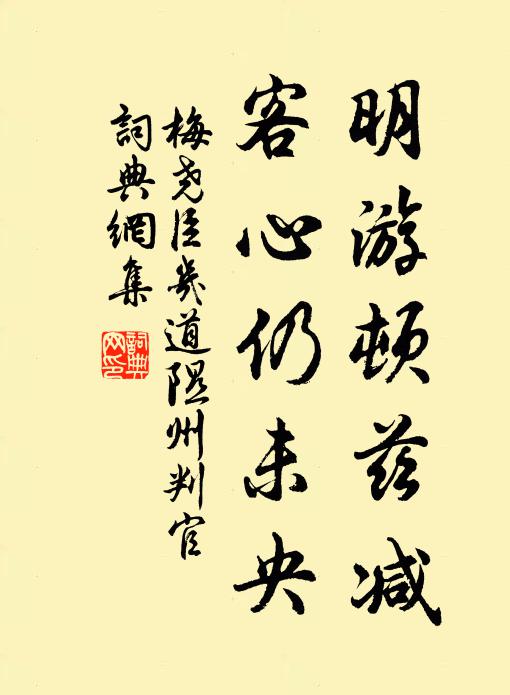 明游頓兹减
客心仍未央
梅尧臣幾道隰州判官
詞典網集
詞典网印